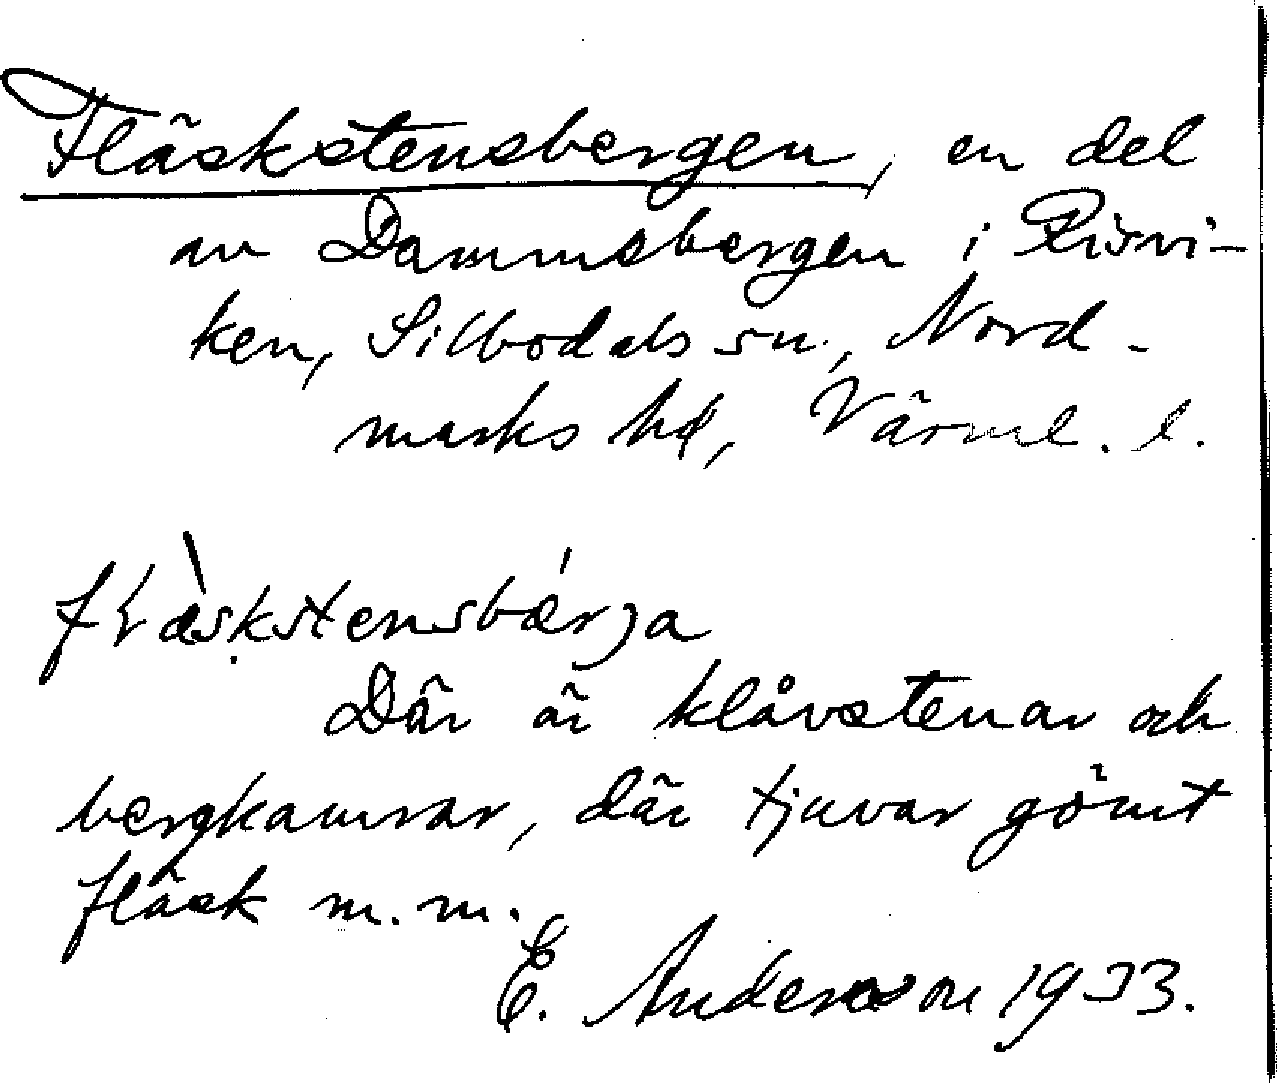 Fläskstensbergen, en del
av Dammsbergen i Risvi-
ken, Silbodals sn., Nord-
marks hd, Värml. l.
flàskstensbǽrja
Där är klåvstenar och
bergkamrar, där tjuvar gömt
fläsk m. m.
E. Andersson 1933.